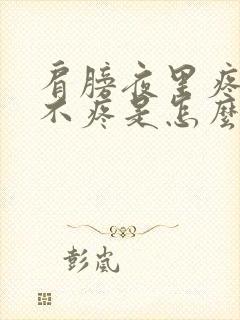 肩膀夜里疼
不疼是怎麼
彭嵐